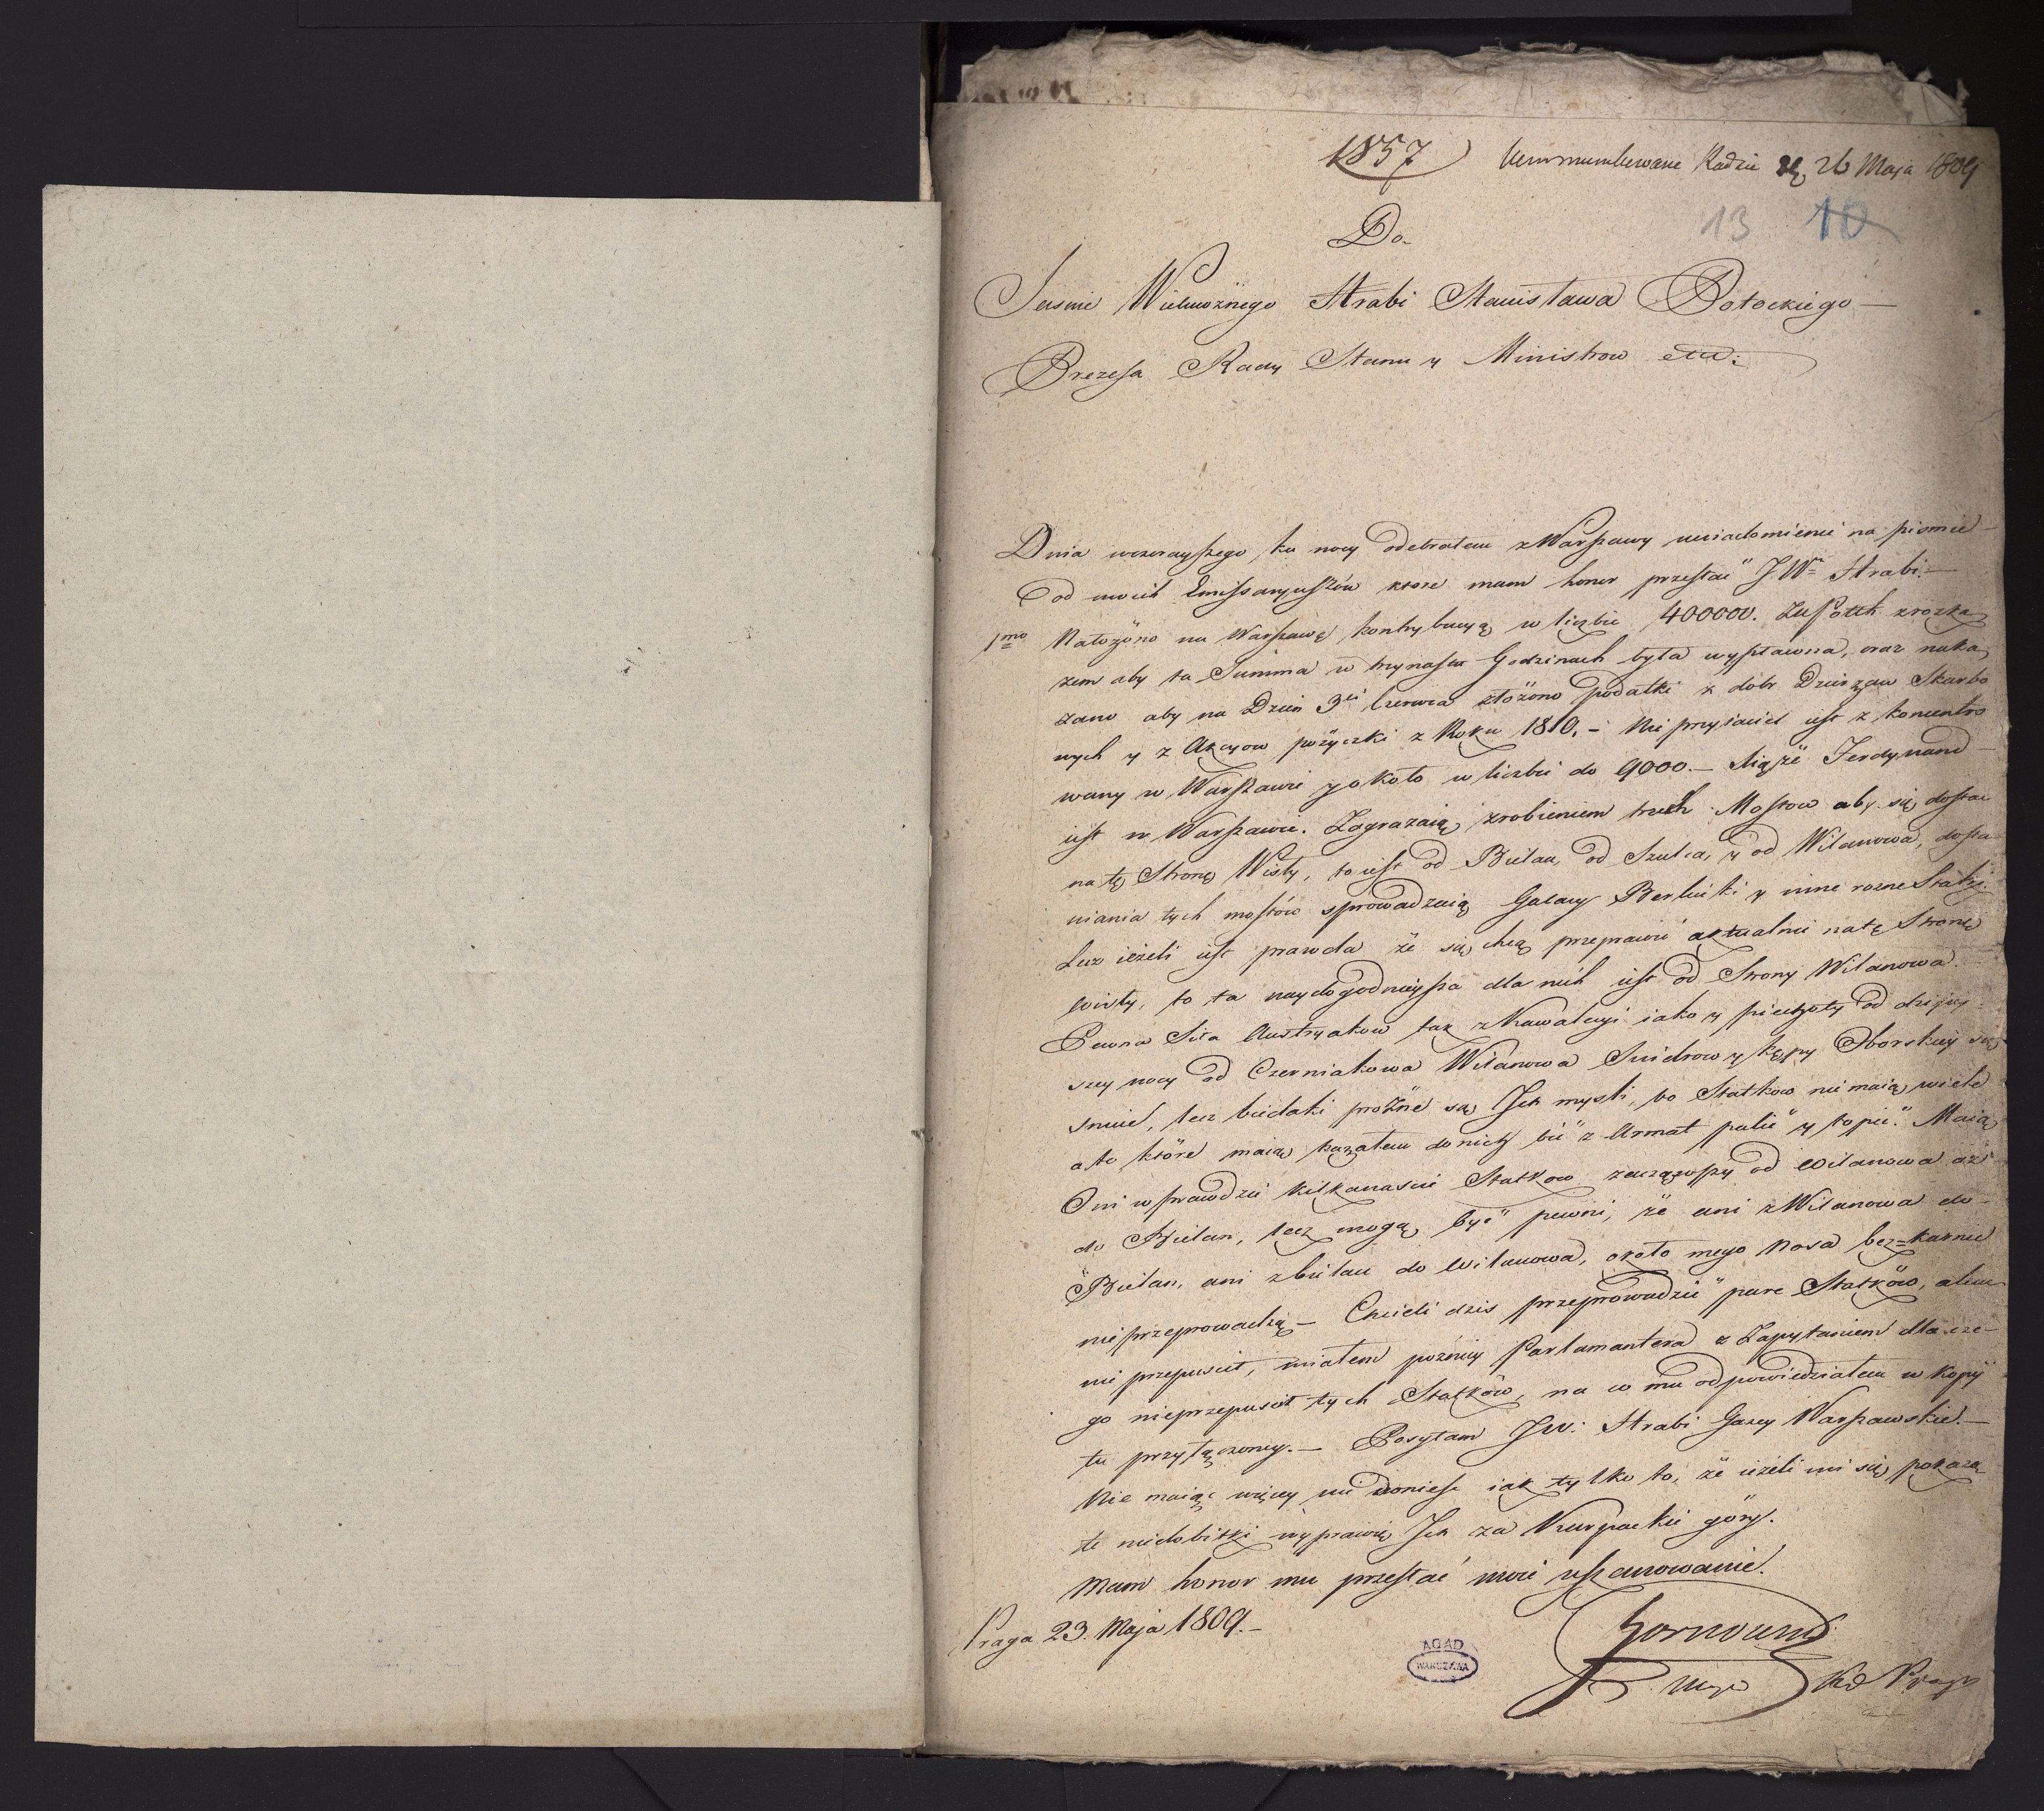 1857
Kommunikowane Radzie d. 26 Maja 1809
13 10
Do
Jasnie Wielmożnego Hrabi Stanisława Potockiego
Prezesa Rady Stanu y Ministrow etc:
Dnia wczorayszego ku nocy odebrałem z Warszawy uwiadomienie na pismie
od moich Emissaryuszów ktore mam honor przesłać JWu Hrabi.
1mo Nałożono na Warszawę kontrybucyą w liczbie 400000. zł Polch z rozka
zem aby ta Summa w trzynastu Godzinach była wypłacona, oraz naka
zano aby na Dzień 3ci Czerwca złożono podatki z dobr Dzierzaw Skarbo
wych y z Akcyow pożyczki z Roku 1810. – Nieprzyiaciel iest z koncentro
wany w Warszawie y około w liczbie do 9000. – Xiąże Ferdynand
iest w Warszawie. Zagrazaią zrobieniem trzech Mostow aby się dostać
na tę Stronę Wisły, to iest od Bielan, od Szulca, y od Wilanowa, dosta
wiania tych mostów sprowadzaią Galary Berlinki y inne rozne Statki.
Lecz ieżeli iest prawda że się chcą przeprawić aktualnie na tę Stronę
Wisły, to ta naydogodnieysza dla nich iest od Strony Wilanowa.
Pewna Siła Austryakow tak z Kawaleryi iako y piechoty od dzisiey
szey nocy od Czerniakowa Wilanowa Swidrow y Kępy Oborskiey się
snuie, lecz biedaki prożne są Ich mysli, bo Statkow nie maią wiele
a te które maią kazałem do nich bić z Armat palić y topić. Maią
Oni wprawdzie kilkanascie Statkow zacząwszy od Wilanowa aż
do Bielan, lecz mogą być pewni, że ani z Wilanowa do
Bielan, ani z bielan do Wilanowa, około mego Nosa bez=karnie
nie przeprowadzą – Chcieli dzis przeprowadzić pare Statków, alem
nie przepuscił, miałem pozniey Parlamantera z Zapytaniem dla cze-
go nieprzepuscił tych Statków, na co mu odpowiedziałem w kopij
tu przyłączoney. – Posyłam JW: Hrabi Gazety Warszawskie. –
Nie maiąc więcey mu donieść iak tylko to, że ieżeli mi się pokazą
te niedobitki wyprawię Ich za Karpackie góry.
Mam honor mu przesłać moie uszanowanie.
Praga 23. Maja 1809. –
Hornowski
AGAD
WARSZAWA
Major Kd Pragi